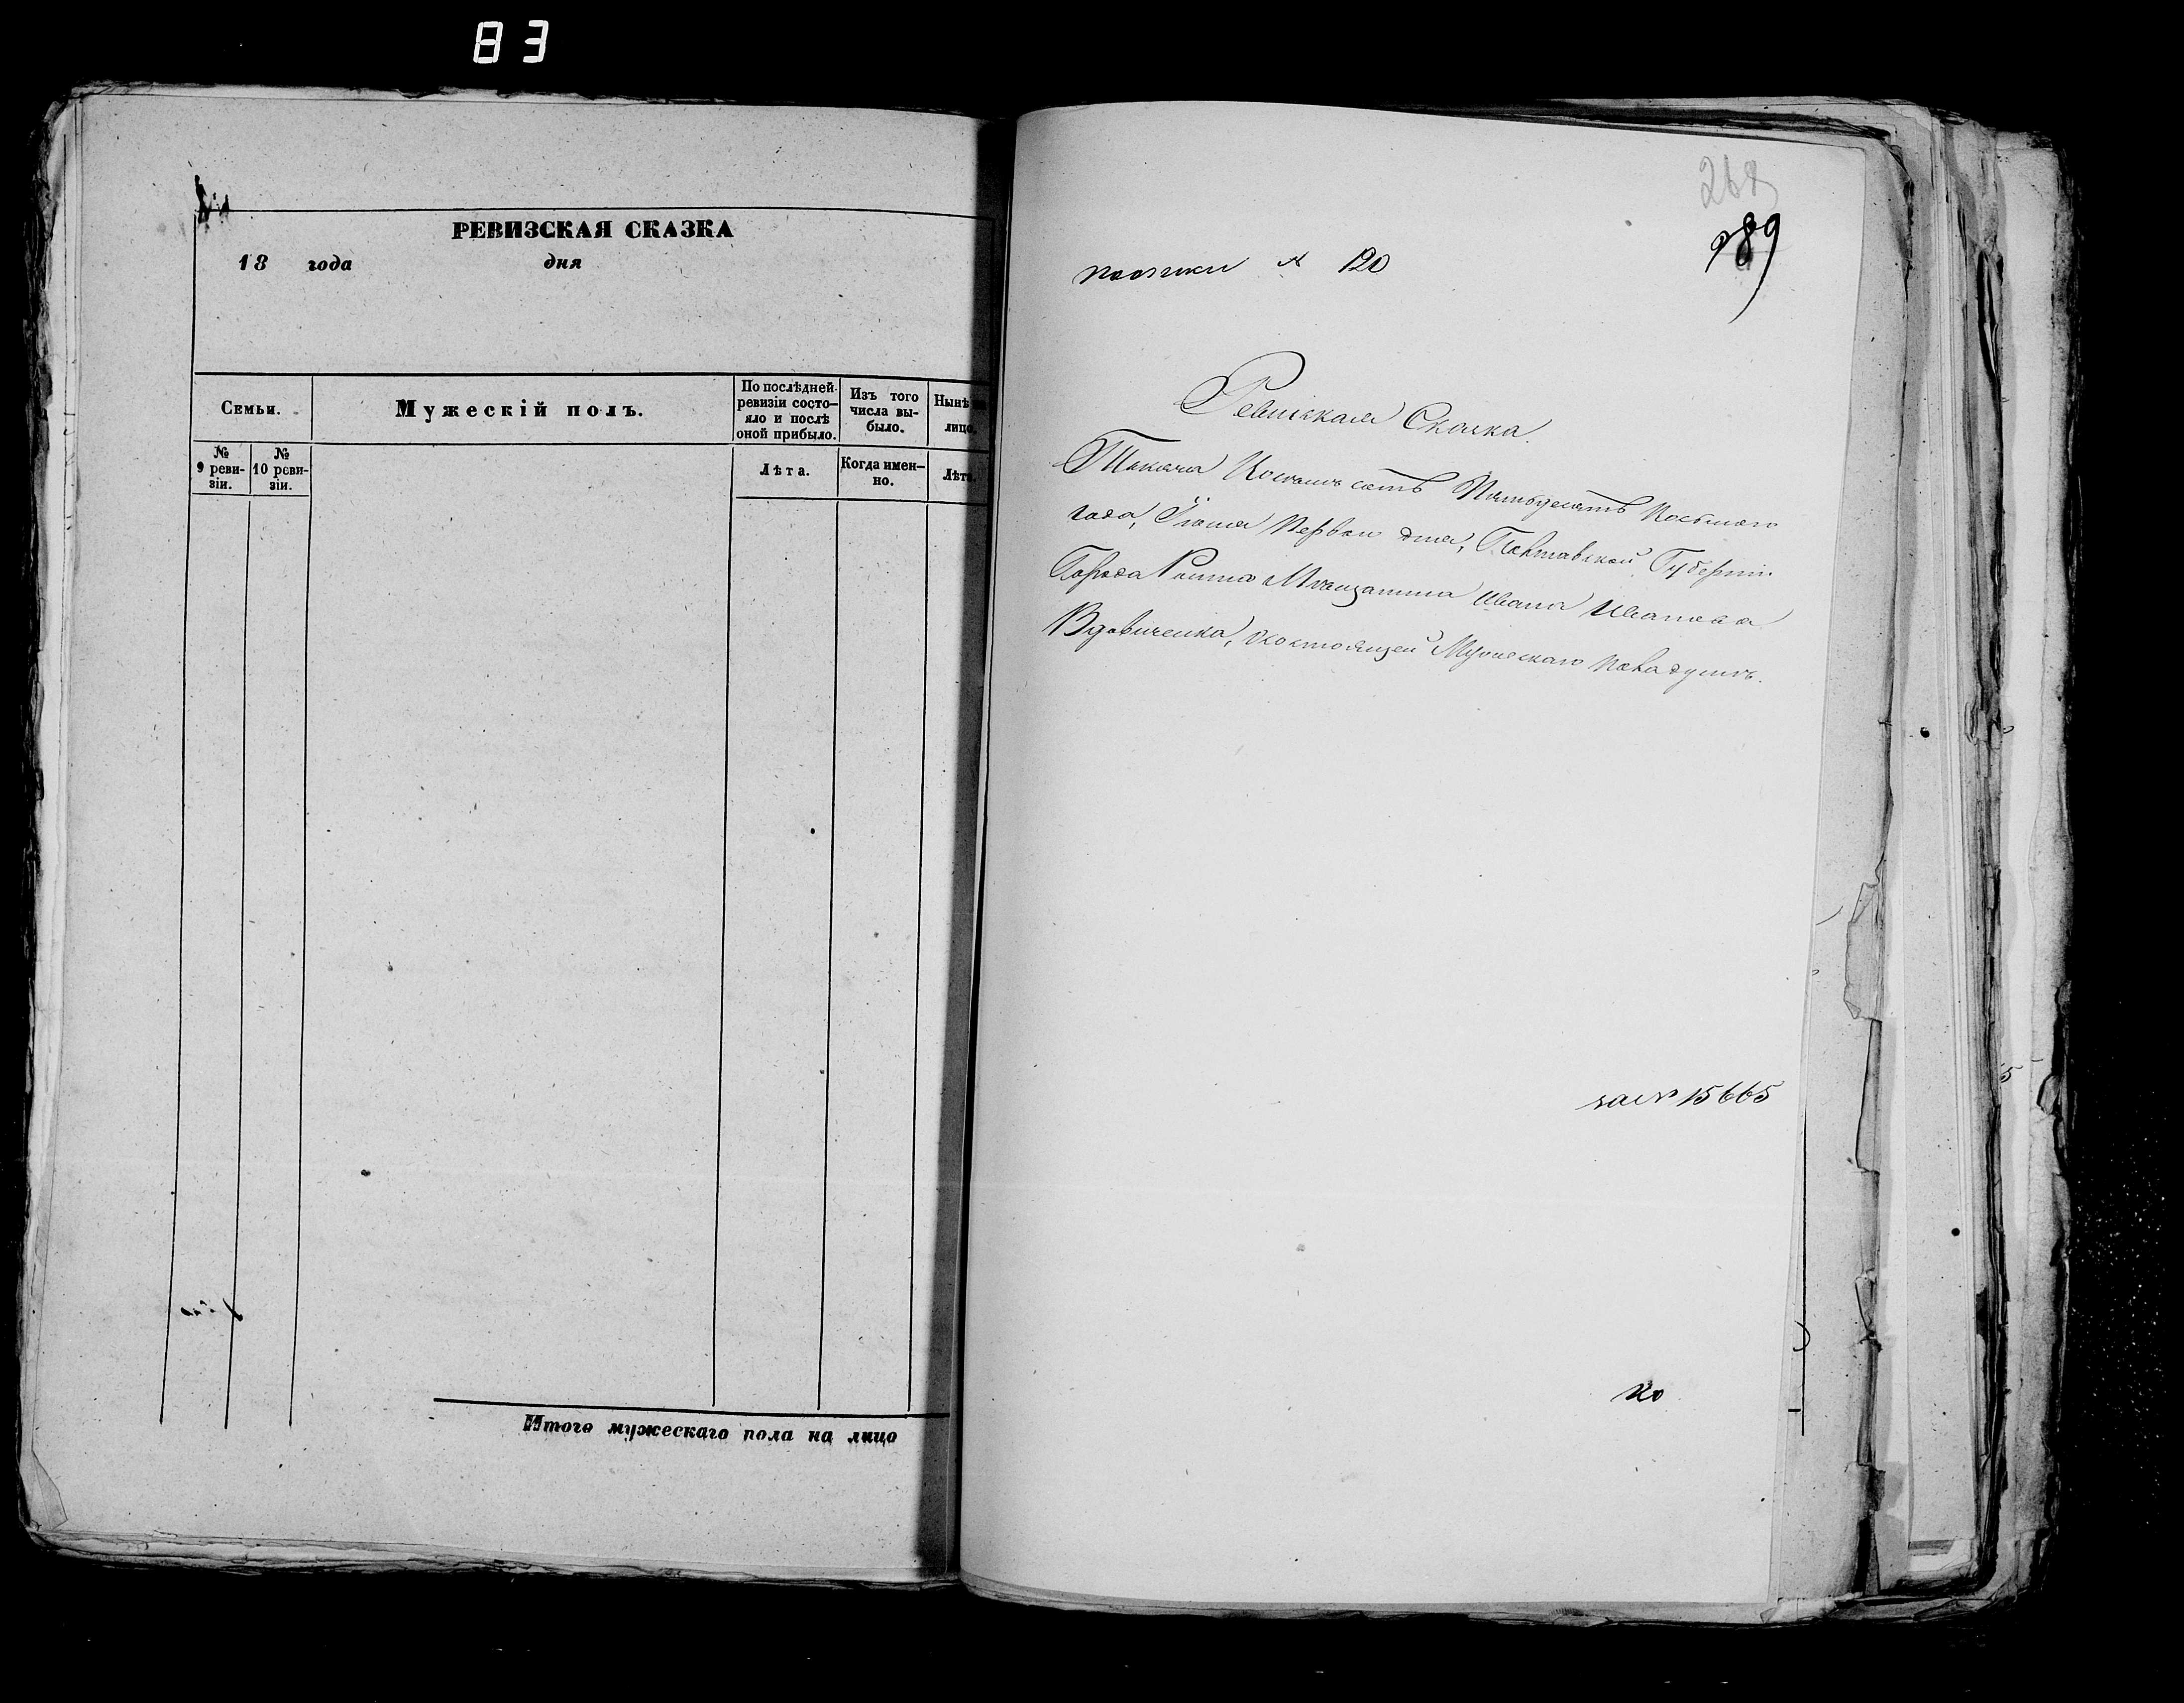 83
РЕВИЗСКАЯ СКАЗКА
18 года дня
Семьи.
Мужескій полъ.
По послѣдней ревизіи состо-
яло и послѣ
оной прибыло.
Изъ того
числа вы-
было.
Нынѣ
лицо.
№
9 реви-
зіи.
№
10 реви-
зіи.
Лѣта.
Когда имен-
но.
Лѣта.
Итого мужескаго пола на лицо
268
289
№ 120
Ревизкая Сказка.
Тысяча Восемьсотъ Пятьдесятъ Восьмого
года, Іюня Первого дня, Полтавской Губерніи
Города Ромна Мѣщанина Ивана Иванова
Вдовиченка, состоящей Мужескаго Пола душъ.
№ 15665